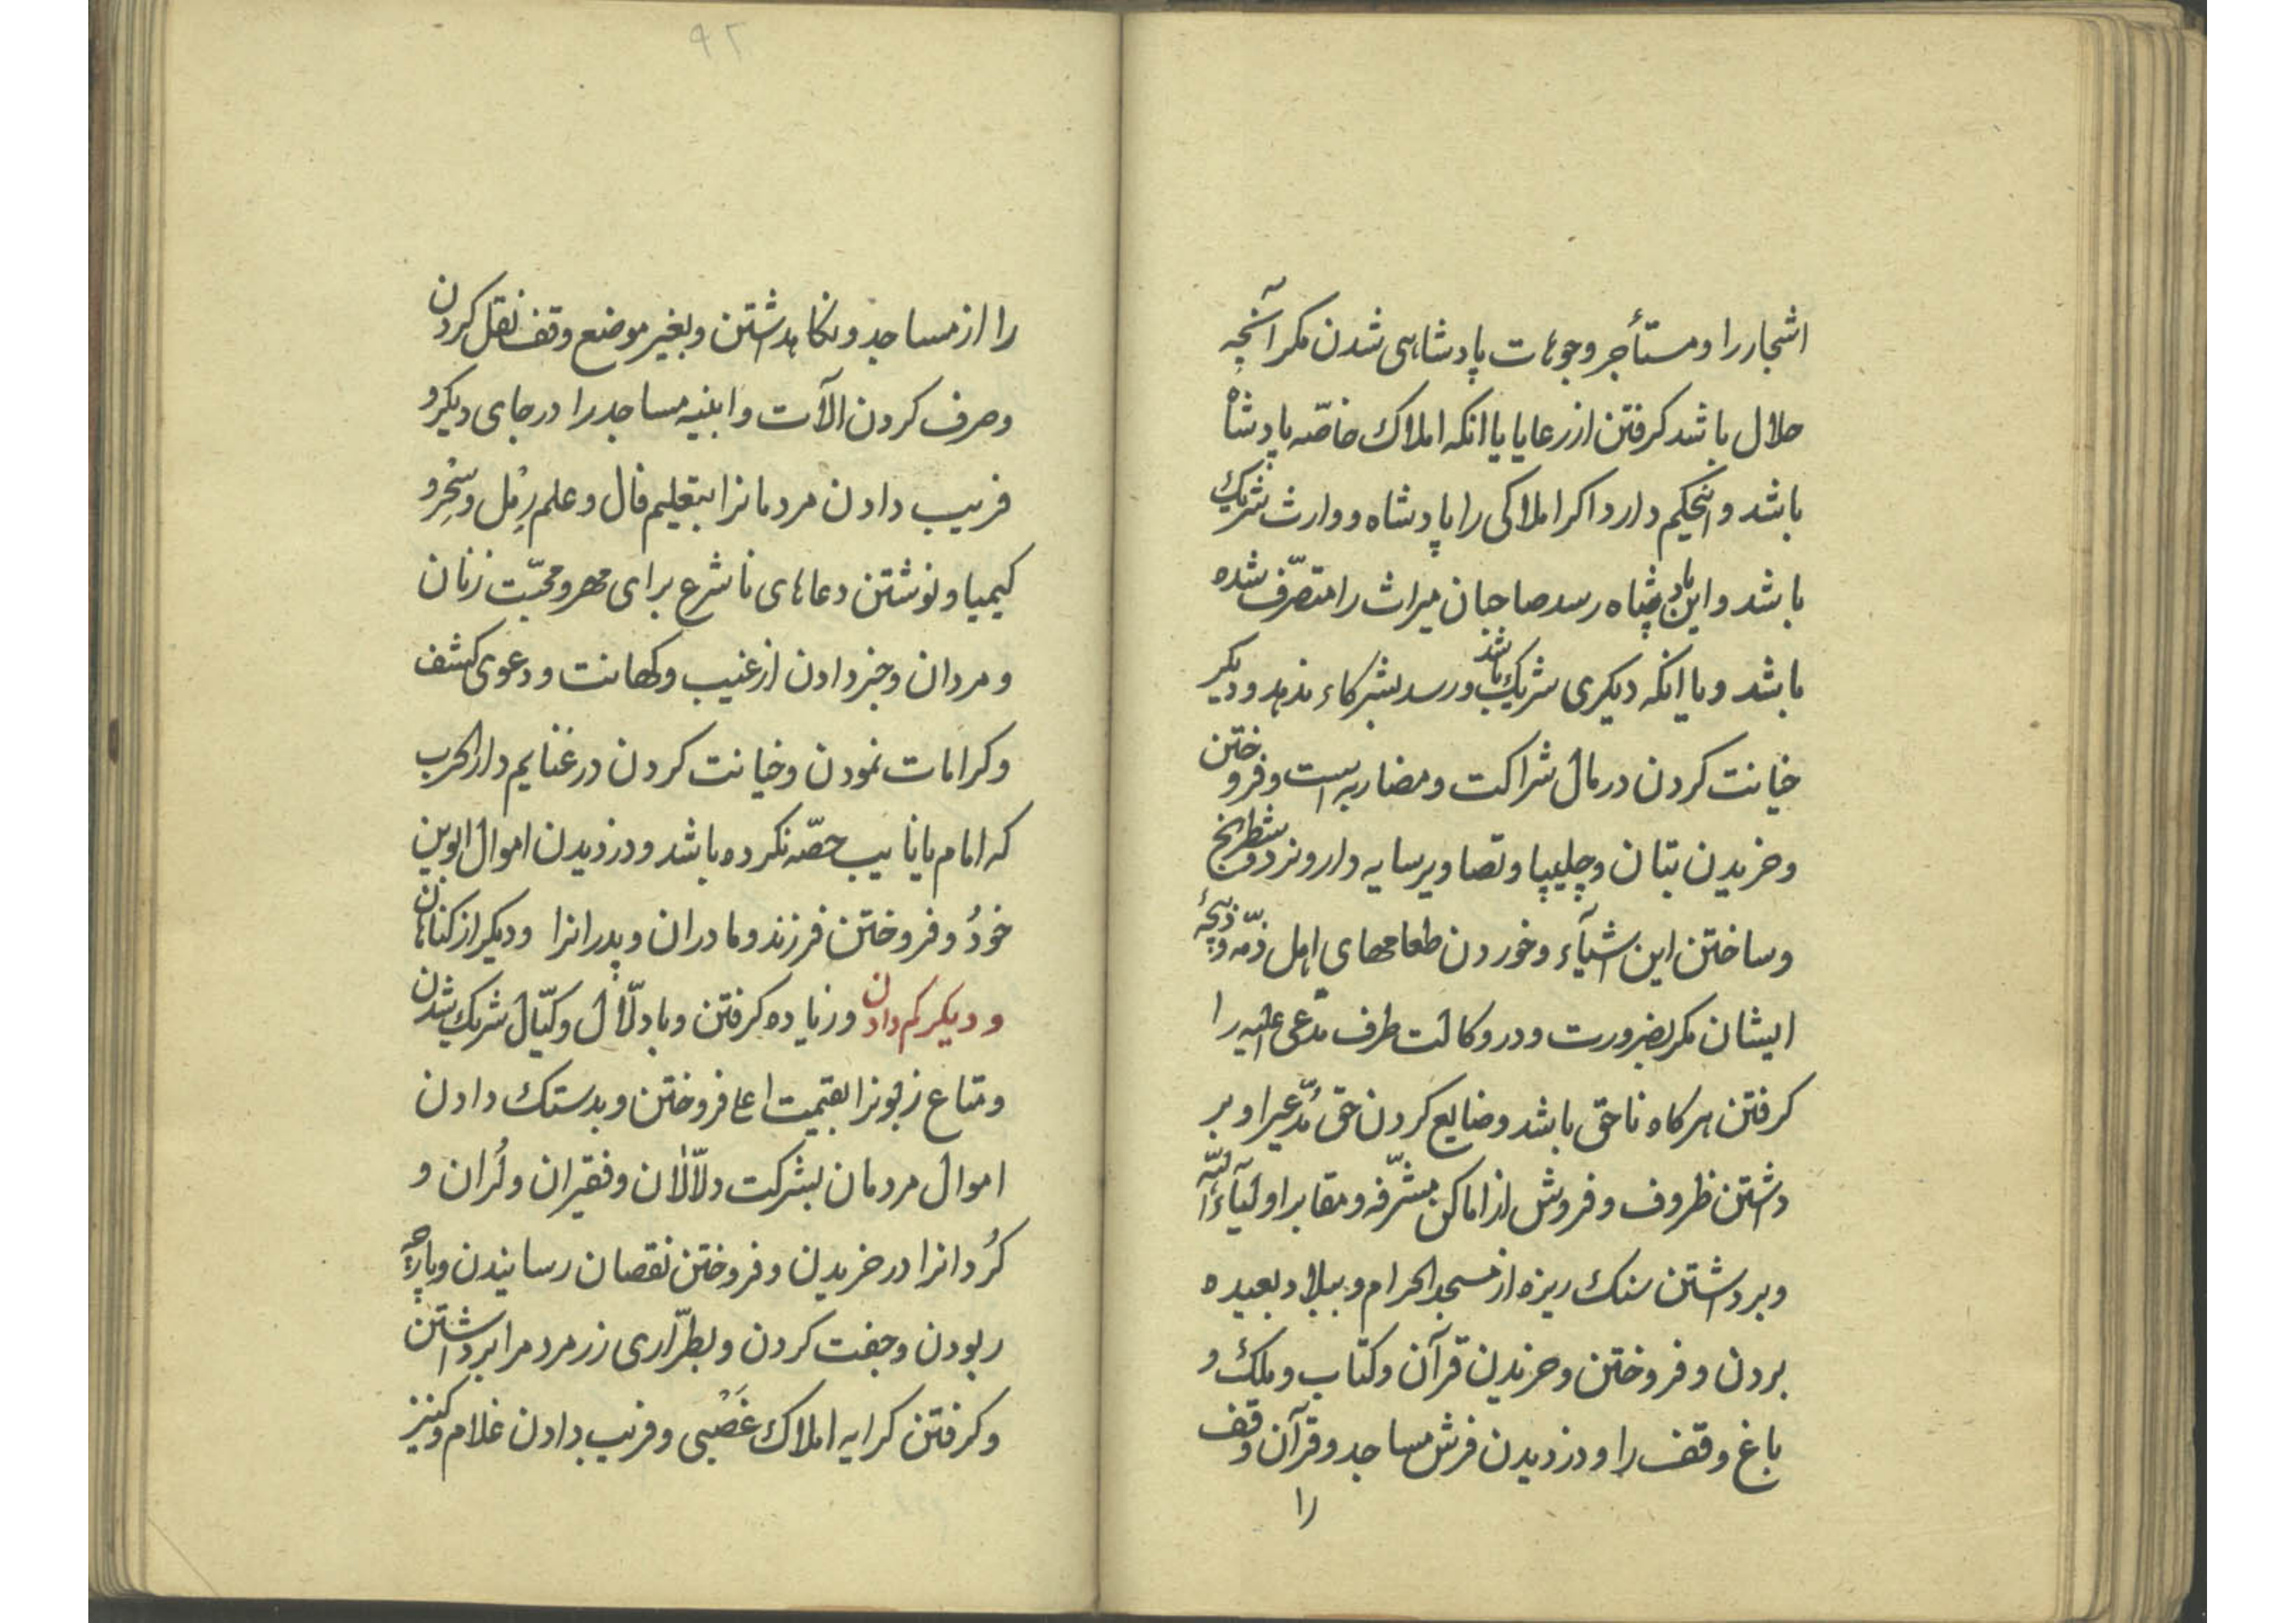 اشجار را و مستأجر وجوهات پادشاهی شدن مکر آنچه
حلال باشد کرفتن از رعایا یا انکه املاک خاصّه پادشاه
باشد و اینحکم دارد اکر املاکی را پادشاه و وارث شریک
باشد و این پادشاه رسد صاحبان میراث را متصرّف شده
باشد و یا انکه دیکری شریک باشد و رسد بشرکاء ندهد و دیکر
خیانت کردن در مال شراکت و مضاربه است و فروختن
و خریدن بتان و چلیپا و تصاویر سایه دار و نرد و شطرنج
و ساختن این اشیآء و خوردن طعامهای اهل ذمّه و ذبیحهٔ
ایشان مکر بضرورت و در وکالت طرف مدّعی علیه را
کرفتن هرکاه ناحق باشد و ضایع کردن حق مُدّعیرا و بر
داشتن ظروف و فروش از اماکن مشرّفه و مقابر اولیآء اللّه
و برداشتن سنک ریزه از مسجد الحرام و ببلاد بعیده
بردن و فروختن و خریدن قرآن و کتاب و ملک و
باغ وقف را و دزدیدن فرش مساجد و قرآن وقف
را
۹۲
را از مساجد و نکاهداشتن و بغیر موضع وقف نقل کردن
و صرف کردن الآت و ابنیه مساجد را در جای دیکر و
فریب دادن مردمانرا بتعلیم فال و علم رمل و سِحْر و
کیمیا و نوشتن دعاهای ناشرع برای مهر و محبّت زنان
و مردان و خبر دادن از غیب و کهانت و دعوی کشف
و کرامات نمودن و خیانت کردن در غنایم دار الحرب
که امام یا نایب حصّه نکرده باشد و دزدیدن اموال ابوین
خودُ و فروختن فرزند و مادران و پدرانرا و دیکر از کناهان
و دیکر کم دادن و زیاده کرفتن و با دلّال و کیّال شریک شدن
و متاع زبونرا بقیمت اعلا فروختن و بدستک دادن
اموال مردمان بشرکت دلاّلان و فقیران و لُران و
کُردانرا در خریدن و فروختن نقصان رسانیدن و پارچه
ربودن و جفت کردن و بطرّاری زر مردمرا برداشتن
و کرفتن کرایه املاک غَصْبی و فریب دادن غلام و کنیز